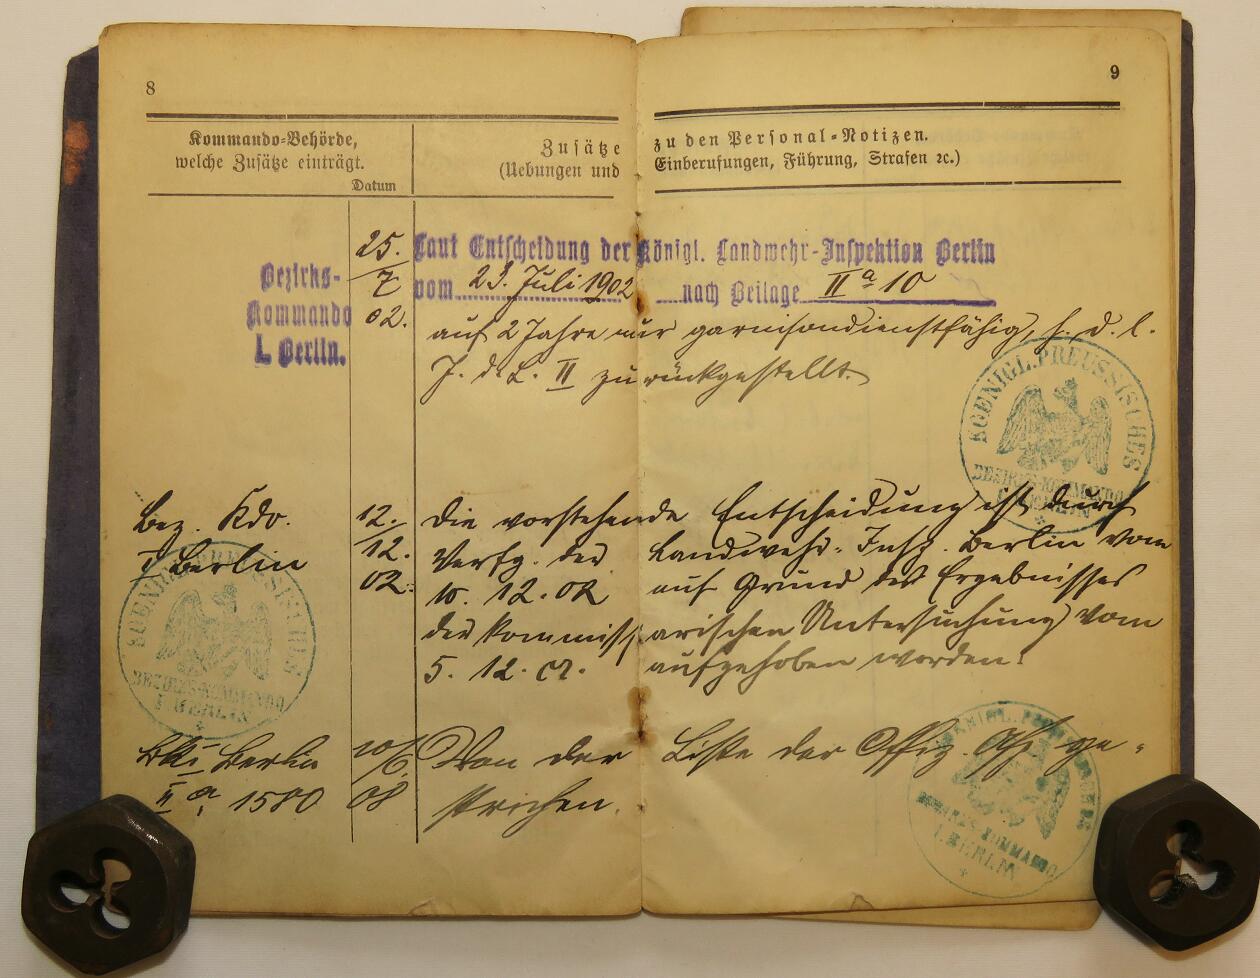 8
9
Kommando-Behörde,
welche Zusätze einträgt.
Datum
Zusätze zu den Personal-Notizen.
(Uebungen und Einberufungen, Führung, Strafen ꝛc.)
Bezirks-
Kommando
I. Berlin.
25.
7
02.
Laut Entscheidung der Königl. Landwehr-Inspektion Berlin
vom 23. Juli 1902 nach Beilage II a 10
auf 2 Jahre nur garnisondienstfähig, f. d. l.
J. d. L. II zurückgestellt.
KOENIGL. PREUSSISCHES
BEZIRKS-KOMMANDO
I. BERLIN
Bez. Kdo.
I Berlin
12.
12.
02.
Die vorstehende Entscheidung ist durch
Verfg. der Landwehr-Insp. Berlin vom
10. 12. 02 auf Grund des Ergebnisses
der kommissarischen Untersuchung vom
5. 12. cr. aufgehoben worden.
KOENIGL. PREUSSISCHES
BEZIRKS-KOMMANDO
I. BERLIN
Berlin
II a, 1580
10/6.
08
Von der Liste der Offiz. Asp. ge-
strichen.
KOENIGL. PREUSSISCHES
BEZIRKS-KOMMANDO
I. BERLIN